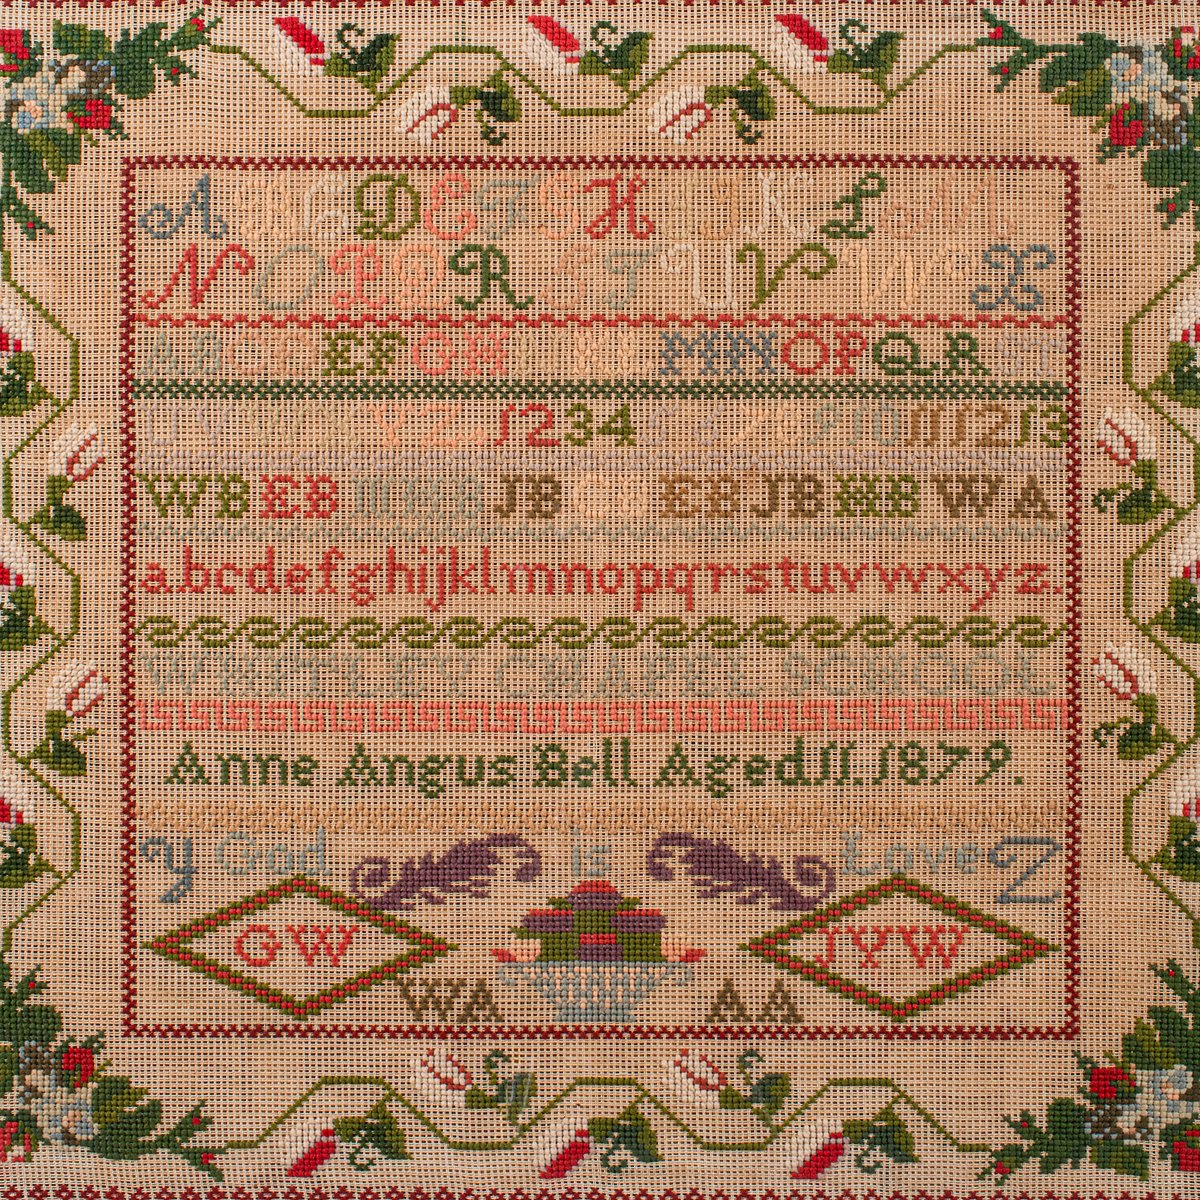 A B C D E F G H I K L M
N O P Q R S T U V W X
ABCDEFGHIKLMNOPQRST
UVWXYZ 1234567891011 12 13
WB EB MWB JB CB EB JB MB WA
abcdefghijklmnopqrstuvwxyz.
WHITLEY CHAPEL SCHOOL
Anne Angus Bell Aged 11. 1879.
Y God is Love Z
GW JYW
WA AA